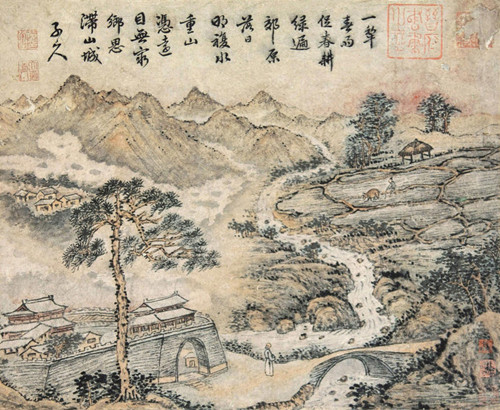 一犂
春雨
促春耕
綠遍
郊原
落日
明複水
重山
憑遠
目無窮
鄉思
滯山城
子久